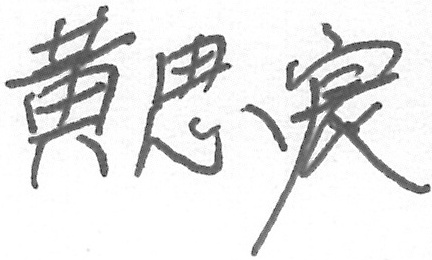 黄思宸